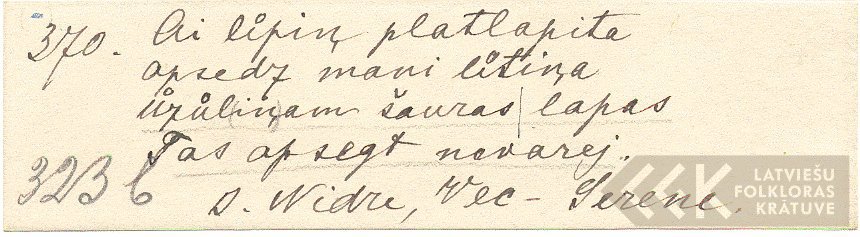 370. Ai līpiņ platlapita
apsedz mani lītiņa
ůzůliņam šauras | lapas
Tas apsegt nevarēj.
323 6 s. Nidre, Vec - Serene.
LATVIEŠU
FOLKLORAS
KRĀTUVE